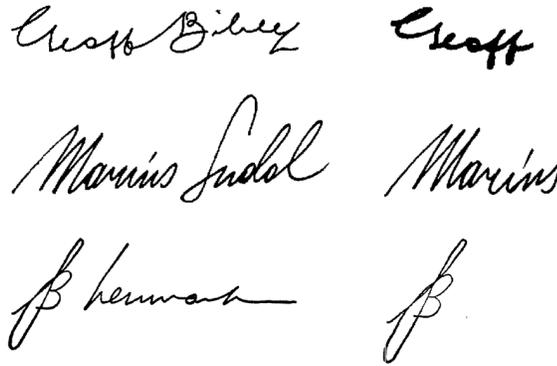 Geoff Bibey Geoff
Marius Sudol Marius
JB Lenmark JB